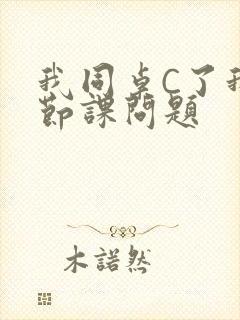 我同卓C了我
節課問題
木諾然